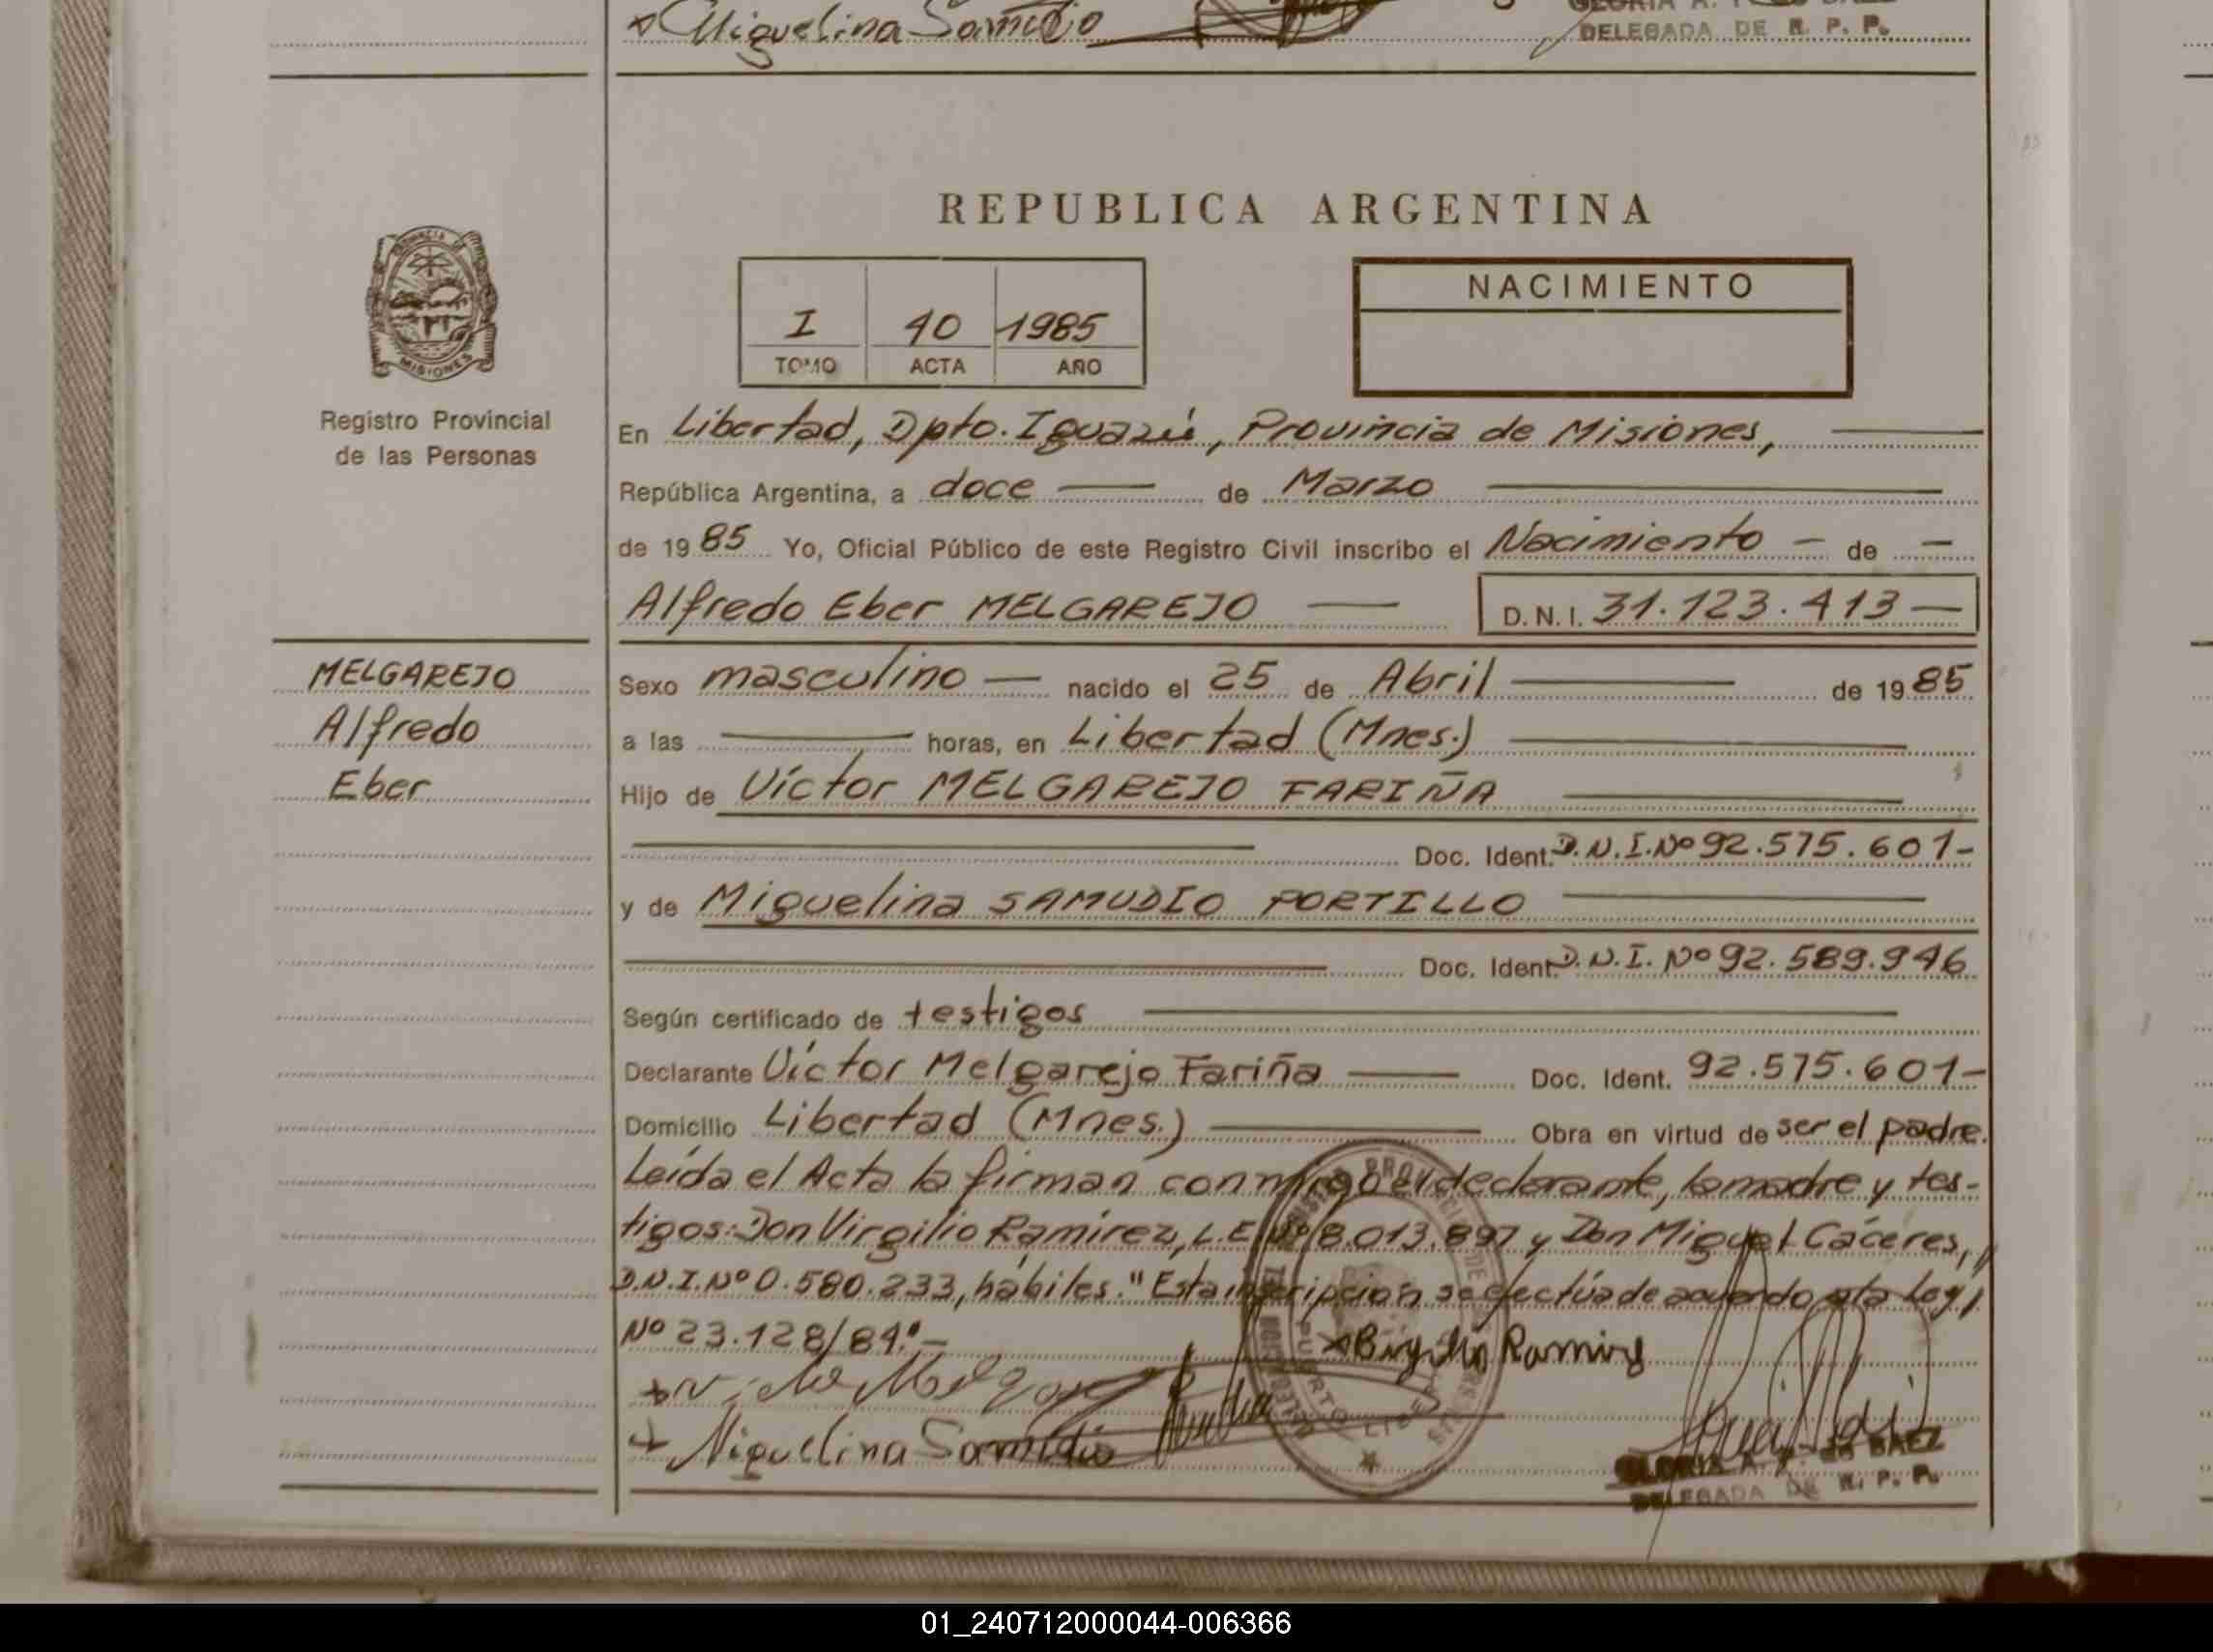 Miguelina Samudio
DELEGADA DE R. P. P.
REPUBLICA ARGENTINA
PROVINCIA DE
MISIONES
Registro Provincial
de las Personas
I 40 1985
TOMO ACTA AÑO
NACIMIENTO
En Libertad, Dpto. Iguazú, Provincia de Misiones,
República Argentina, a doce de Marzo
de 1985 Yo, Oficial Público de este Registro Civil inscribo el Nacimiento - de -
Alfredo Eber MELGAREJO D.N.I. 31.123.413
MELGAREJO
Alfredo
Eber
Sexo masculino nacido el 25 de Abril de 1985
a las horas, en Libertad (Mnes.)
Hijo de Víctor MELGAREJO FARIÑA
Doc. Ident. D.N.I. Nº 92.575.601-
y de Miguelina SAMUDIO PORTILLO
Doc. Ident. D.N.I. Nº 92.589.946
Según certificado de testigos
Declarante Víctor Melgarejo Fariña Doc. Ident. 92.575.601-
Domicilio Libertad (Mnes.) Obra en virtud de ser el padre.
Leída el Acta la firman conmigo el declarante, la madre y tes-
tigos: Don Virgilio Ramírez, L.E. Nº 8.013.897 y Don Miguel Cáceres,
D.N.I. Nº 0.580.233, hábiles. "Esta inscripción se efectúa de acuerdo a la Ley
Nº 23.128/84".-
Miguelina Samudio
GLORIA A. DE BAEZ
DELEGADA DE R. P. P.
01_240712000044-006366